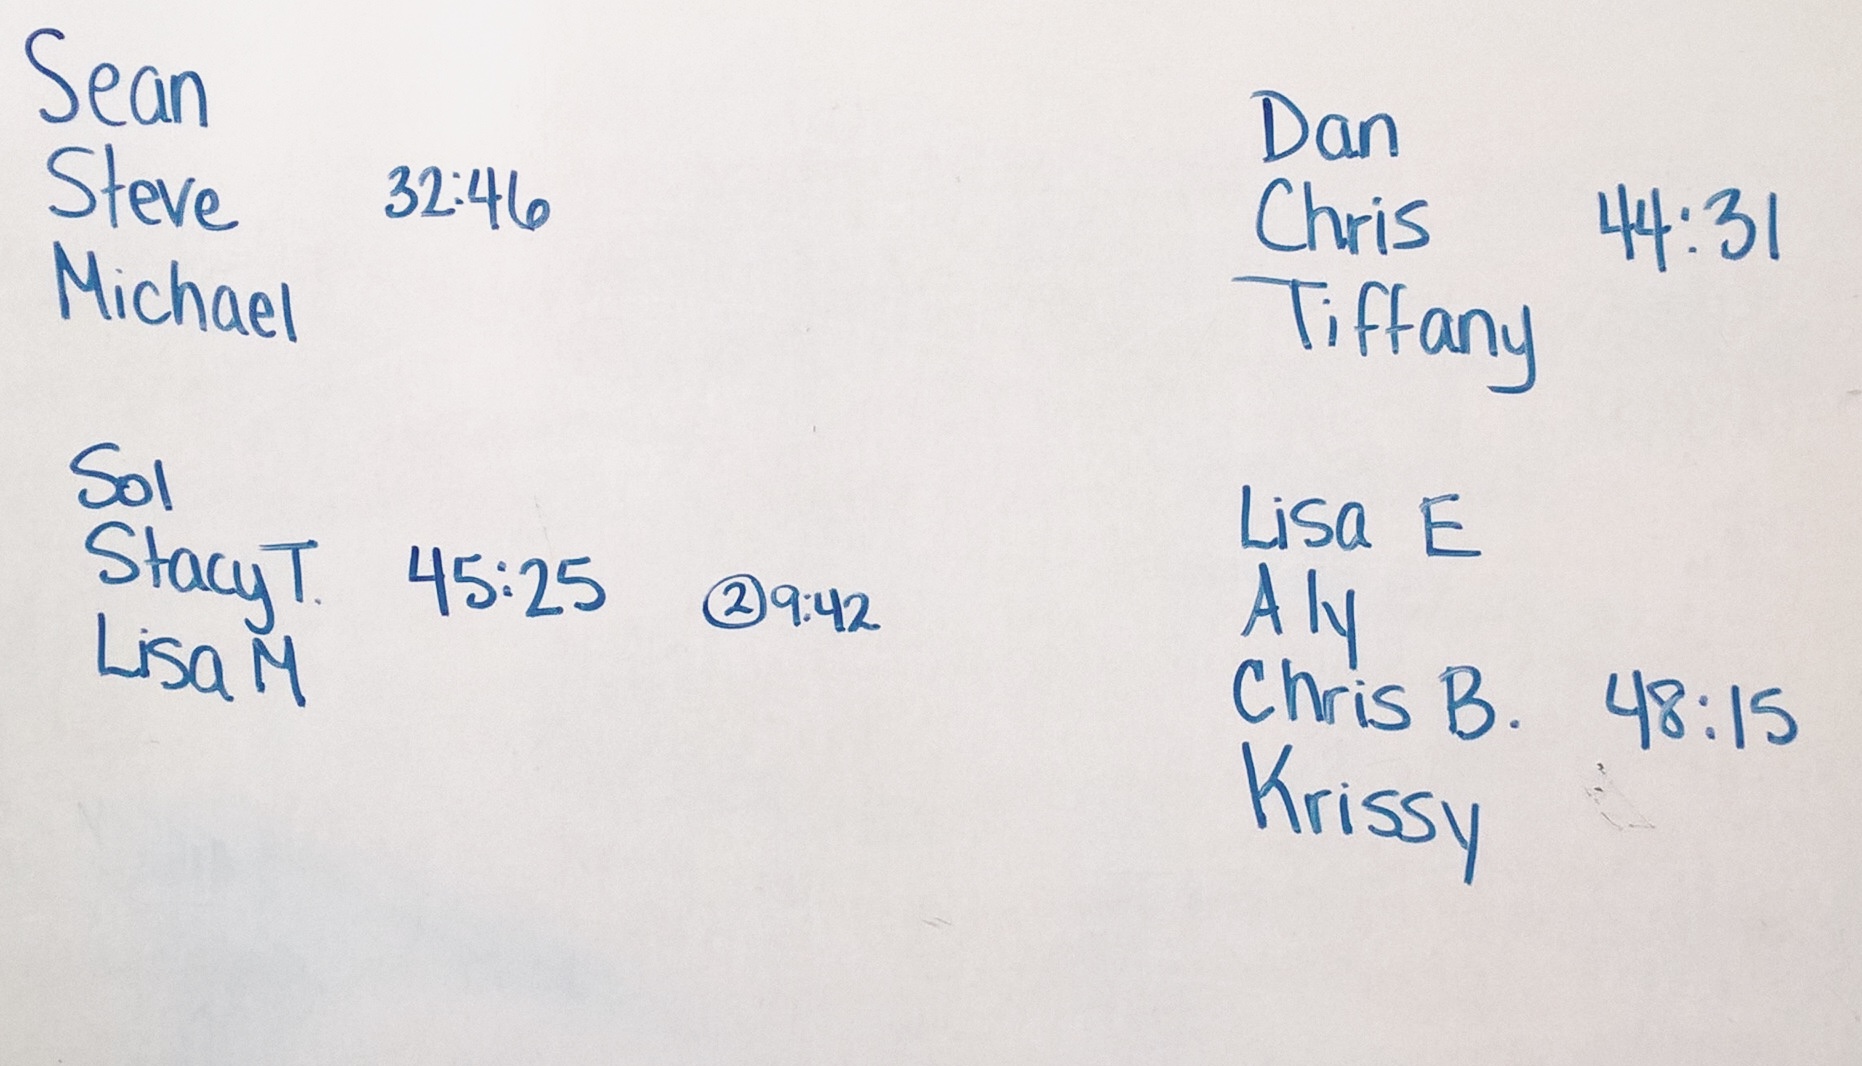 Sean
Steve 32:46
Michael
Sol
Stacy T. 45:25 ② 9:42
Lisa M
Dan
Chris 44:31
Tiffany
Lisa E
Aly
Chris B. 48:15
Krissy